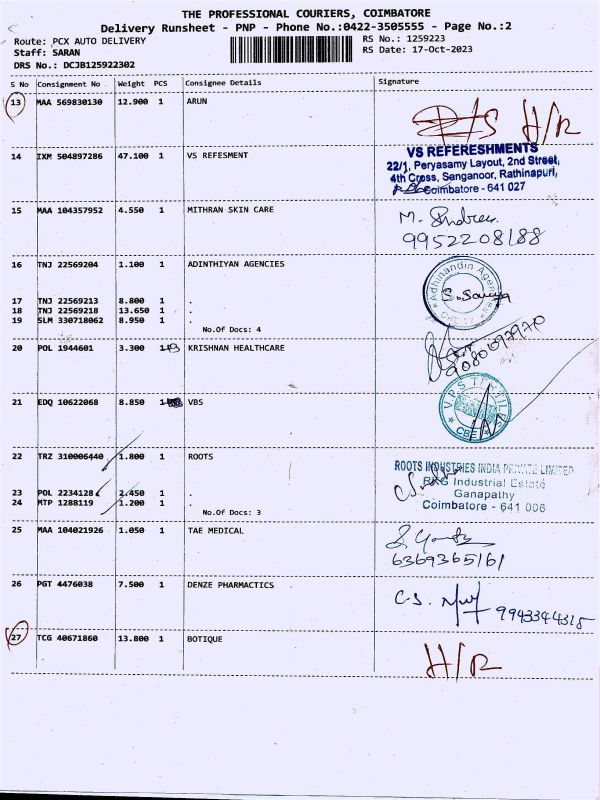 THE PROFESSIONAL COURIERS, COIMBATORE
Delivery Runsheet - PNP - Phone No.:0422-3505555 - Page No.:2
Route: PCX AUTO DELIVERY
RS No.: 1259223
Staff: SARAN
RS Date: 17-Oct-2023
DRS No.: DCJB125922302
S No Consignment No Weight PCS Consignee Details Signature
13 MAA 569830130 12.900 1 ARUN
H/R
14 IXM 504897286 47.100 1 VS REFESMENT
VS REFERESHMENTS
22/1, Peryasamy Layout, 2nd Street,
4th Cross, Sanganoor, Rathinapuri,
Coimbatore - 641 027
15 MAA 104357952 4.550 1 MITHRAN SKIN CARE
9952208188
16 TNJ 22569204 1.100 1 ADINTHIYAN AGENCIES
17 TNJ 22569213 8.800 1 .
18 TNJ 22569218 13.650 1 .
19 SLM 330718062 8.950 1 .
No.Of Docs: 4
20 POL 1944601 3.300 KRISHNAN HEALTHCARE
9080097970
21 EDQ 10622068 8.850 VBS
V.P.S TEXTILES
CBE
22 TRZ 310006440 1.800 1 ROOTS
ROOTS INDUSTRIES INDIA PRIVATE LIMITED
RKG Industrial Estate
Ganapathy
Coimbatore - 641 006
23 POL 2234128 2.450 1 .
24 MTP 1288119 1.200 1 .
No.Of Docs: 3
25 MAA 104021926 1.050 1 TAE MEDICAL
6369365161
26 PGT 4476038 7.500 1 DENZE PHARMACTICS
C.S.
9943344315
27 TCG 40671860 13.800 1 BOTIQUE
H/R